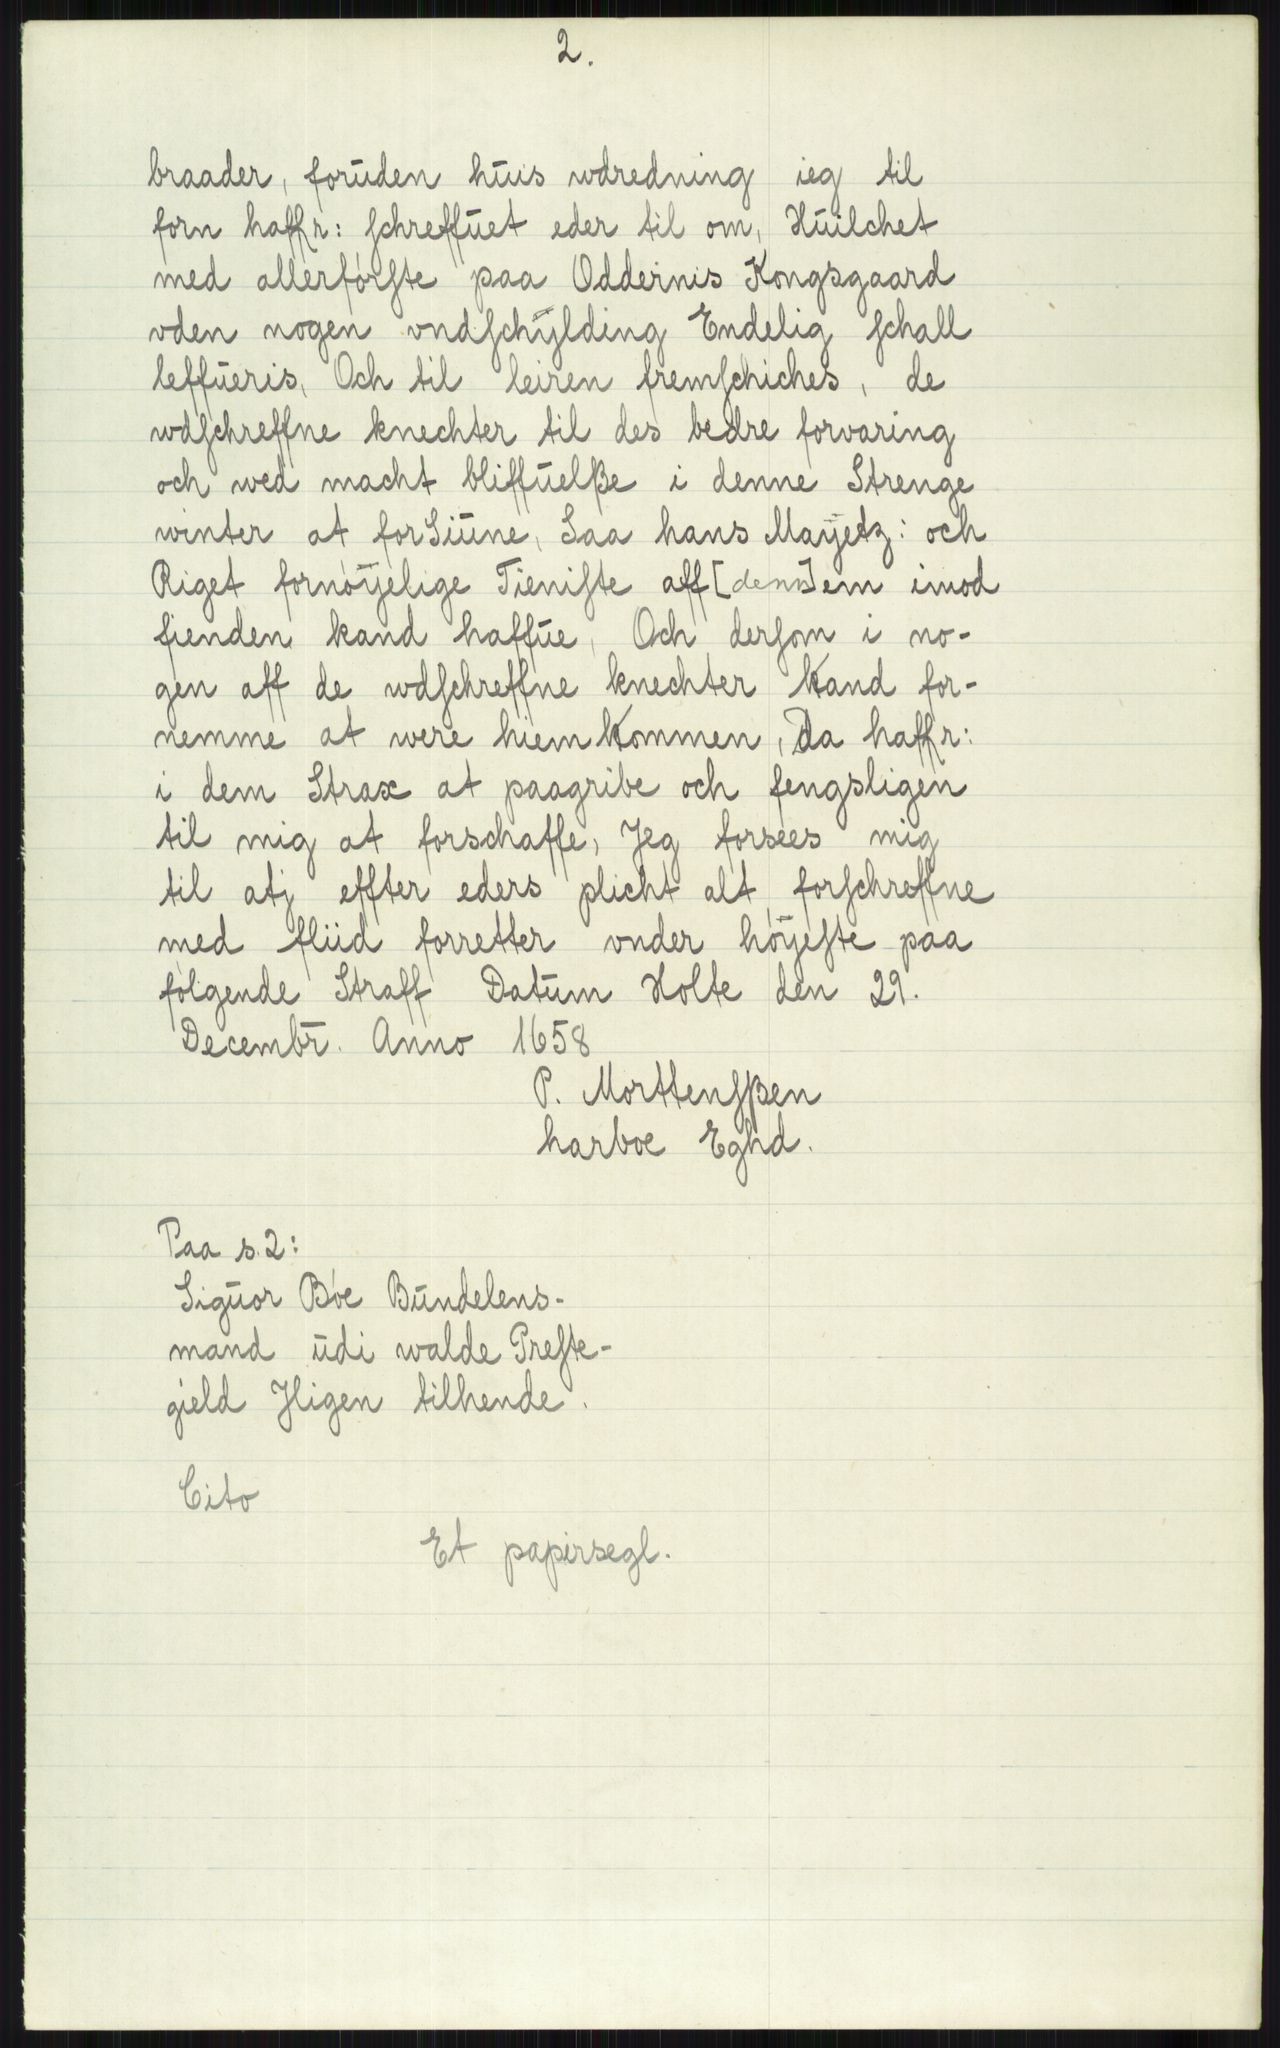 2.
braader, foruden huis wdredning ieg til
forn haffr: schreffuet eder til om, Huilchet
med allerførste paa Oddernis Kongsgaard
vden nogen vndschÿlding Endelig schall
leffueris, Och til leiren fremschiches, de
wdschreffne knechter til des bedre forvaring
och wed macht bliffuelße i denne Strenge
winter at forSiune, Saa hans Mayetz: och
Riget fornøÿelige Tieniste aff [denn]em imod
fienden kand haffue, Och dersom i no-
gen aff de wdschreffne knechter kand for-
nemme at were hiem kommen, Da haffr:
i dem Strax at paagribe och fengsligen
til mig at forschaffe, Jeg forsees mig
til atj effter eders plicht alt forschreffne
med fliid forretter vnder høÿeste paa
følgende Straff Datum Holte den 29.
Decembr. Anno 1658
P. Morttensßen
harboe Eghd.
Paa s. 2:
Siguor Bøe Bundelens-
mand udi walde Preste-
gield Jligen tilhende.
Cito
Et papirsegl.